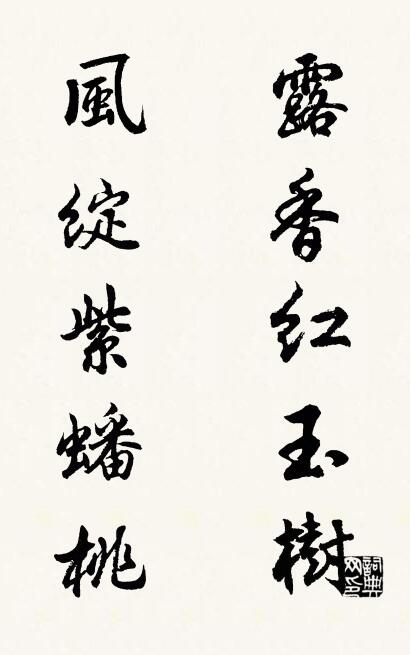 露香红玉樹
風綻紫蟠桃
詞典网印